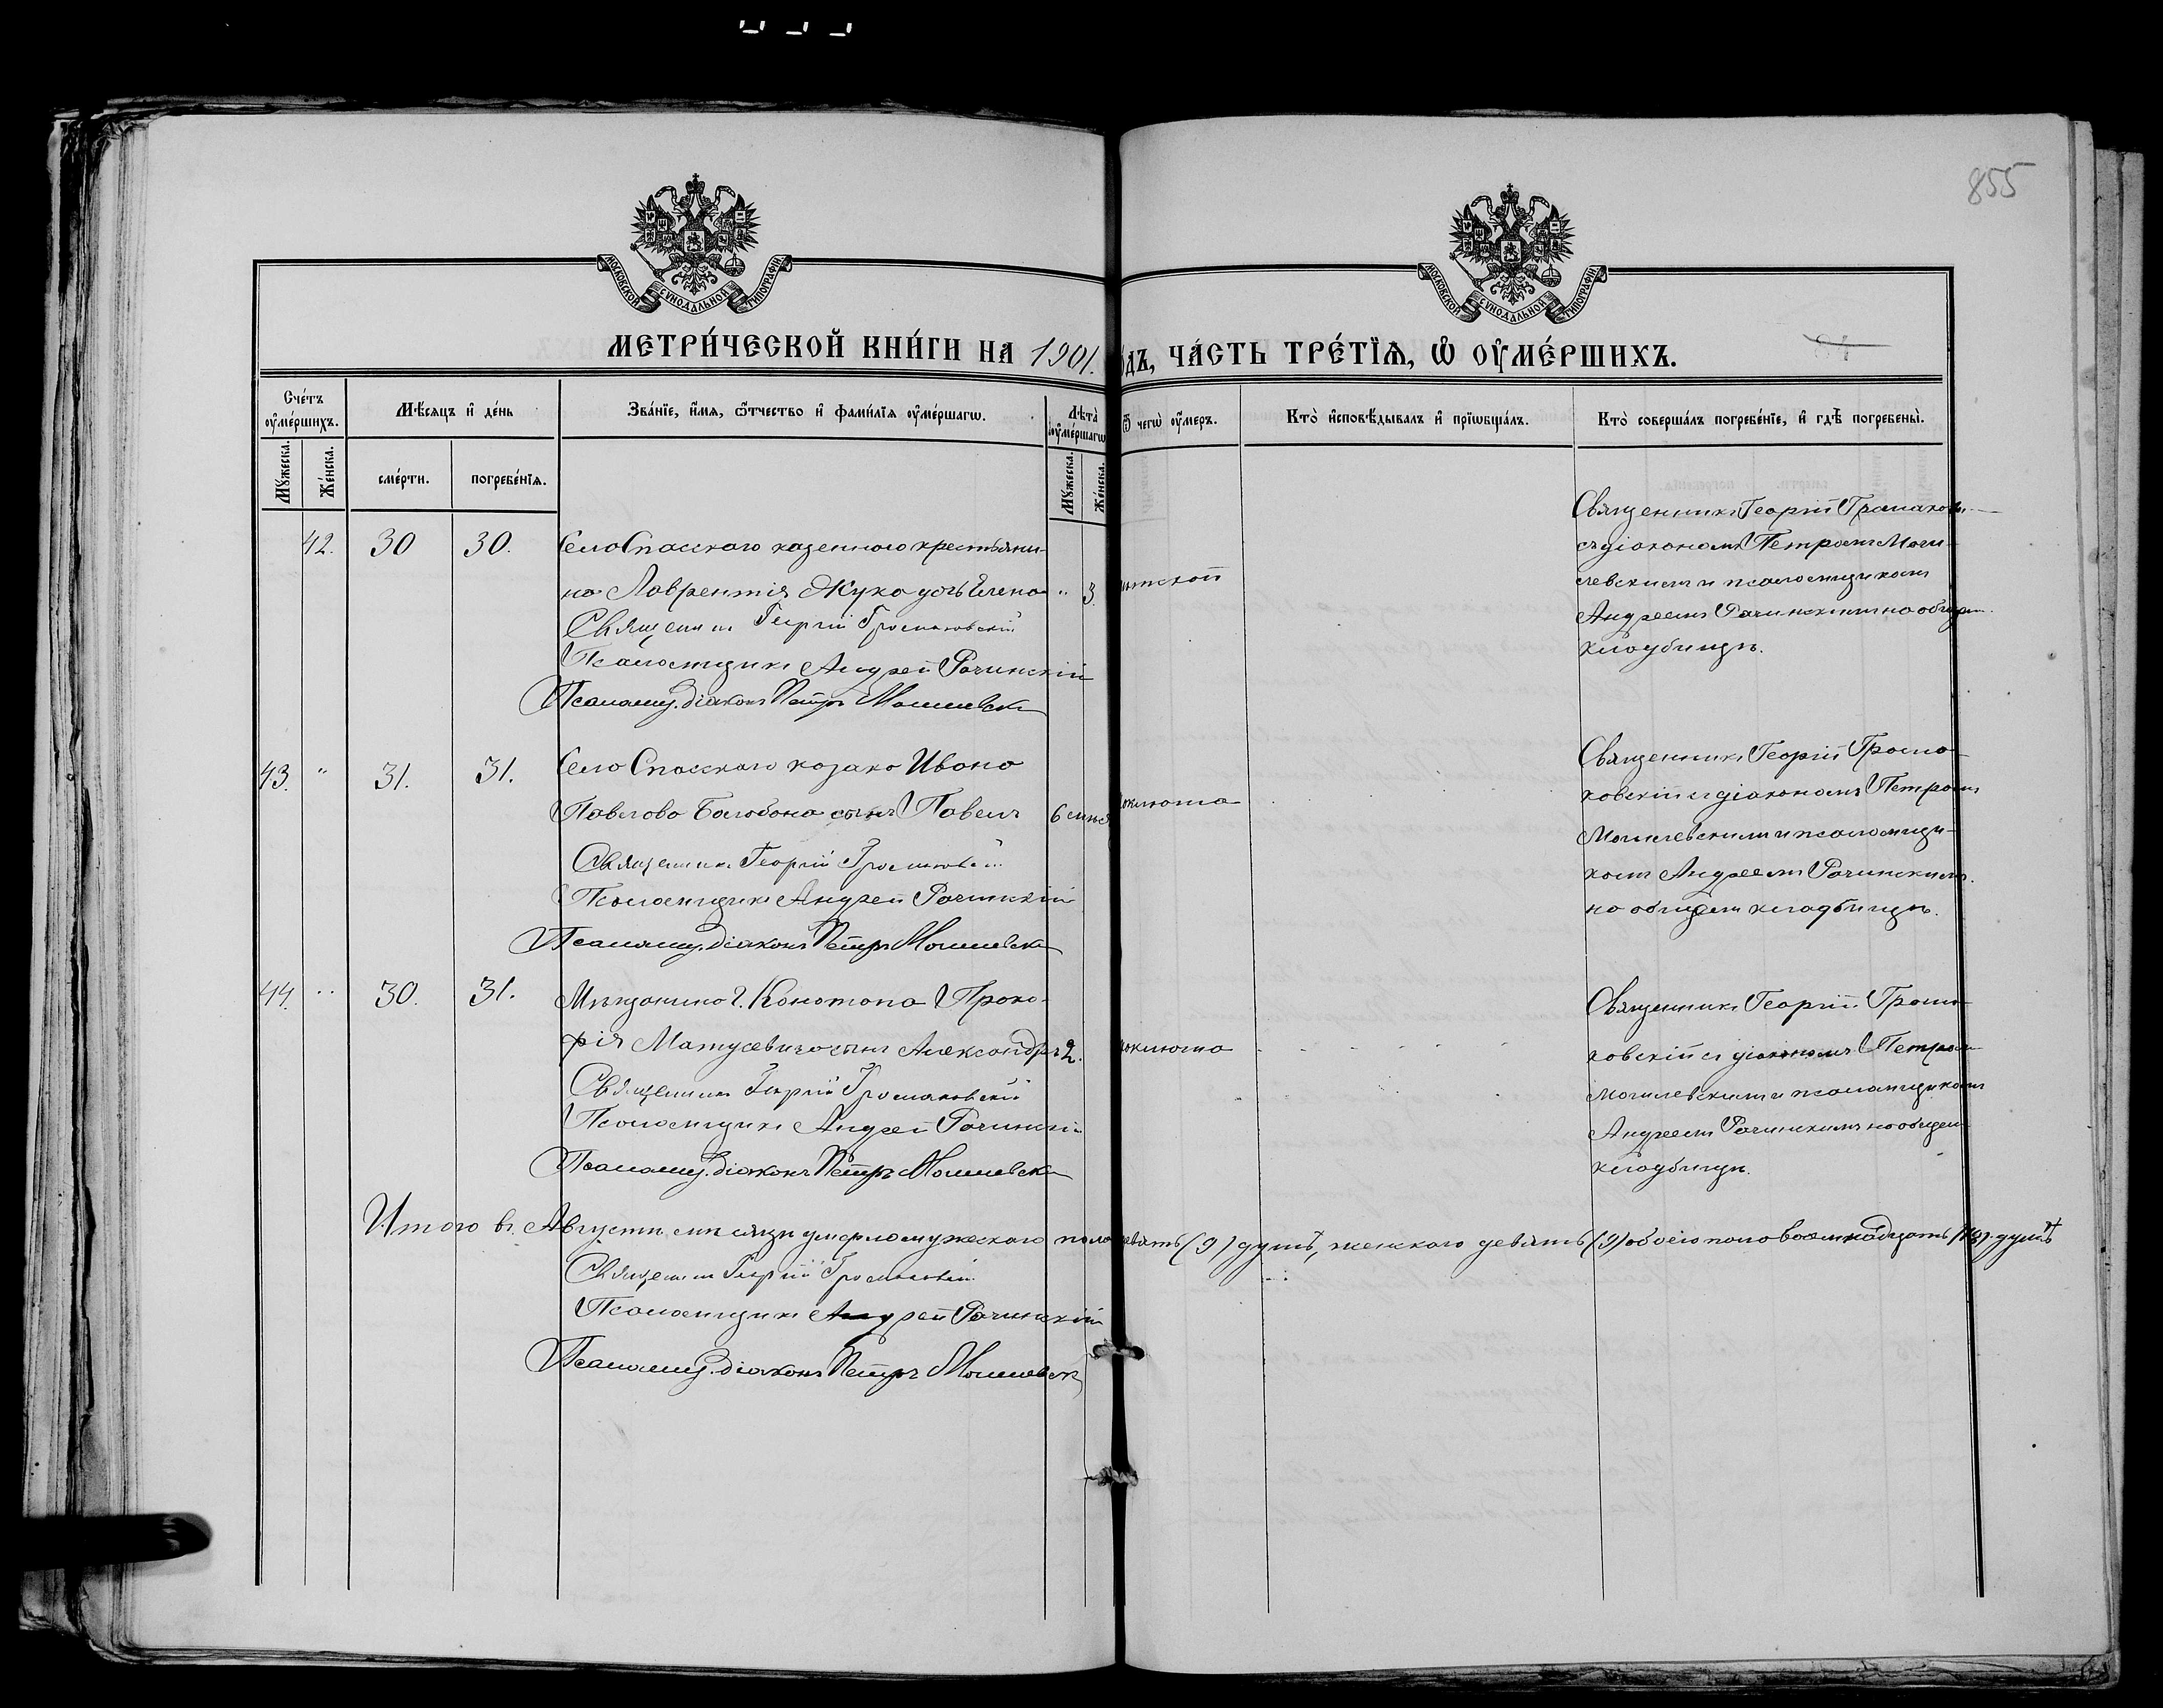 855
МОСКОВСКОЙ СУНОДАЛЬНОЙ ТИПОГРАФІИ
МОСКОВСКОЙ СУНОДАЛЬНОЙ ТИПОГРАФІИ
МЕТРИ́ЧЕСКОЙ КНИ́ГИ НА 1901. ÓДЪ, ЧА́СТЬ ТРЕ́ТІѦ, Ѡ҆ ОУ҆МЕ́РШИХЪ.
Сче́тъ оу҆ме́ршихъ.
Мѣ́сѧцъ и҆ де́нь
Зва́нїе, и҆́мѧ, ѻ҆́тчество и҆ фами́лїѧ оу҆ме́ршагѡ.
Лѣта̀ оу҆ме́ршагѡ
Ѿ чегѡ̀ оу҆́меръ.
Кто̀ и҆сповѣ́дывалъ и҆ прїѡбща́лъ.
Кто̀ соверша́лъ погребе́нїе, и҆ гдѣ̀ погребены̀.
Мꙋ́жеска.
Же́нска.
сме́рти.
погребе́нїѧ.
Мꙋ́жеска.
Же́нска.
42. 30 30. Села Спасскаго казеннаго крестьяни-
на Лаврентія Жука дочь Елена " 3.
Священникъ Георгій Громаковскій
Псаломщикъ Андрей Рачинскій
Псаломщ. діаконъ Петръ Могилевскі
Священникъ Георгій Громаков
съ діакономъ Петромъ Моги-
левскимъ и псаломщикомъ
Андреемъ Рачинскимъ на общем
кладбищѣ.
43. " 31. 31. Села Спасскаго козака Ивана
Павлова Балабона сынъ Павелъ 6 мѣся оклюша
Священникъ Георгій Громаковскій
Псаломщикъ Андрей Рачинскій
Псаломщ. діаконъ Петръ Могилевск
Священникъ Георгій Грома-
ковскій съ діакономъ Петромъ
Могилевскимъ и псаломщи-
комъ Андреемъ Рачинскимъ.
на общем кладбищѣ.
44. " 30. 31. Мѣщанина г. Конотопа Проко-
фія Матусевича сынъ Александръ 2. оклюша
Священникъ Георгій Громаковскій
Псаломщикъ Андрей Рачинскій
Псаломщ. діаконъ Петръ Могилевск
Священникъ Георгій Грома-
ковскій съ діакономъ Петром
Могилевскимъ и псаломщикомъ
Андреемъ Рачинскимъ на общем
кладбищѣ.
Итого въ Августѣ мѣсяцѣ умерло мужескаго пола евять (9) душъ, женскаго девять (9) обоего пола восемнадцать (18) душъ
Священникъ Георгій Громаковскій
Псаломщикъ Андрей Рачинскій
Псаломщ. діаконъ Петръ Могилевск